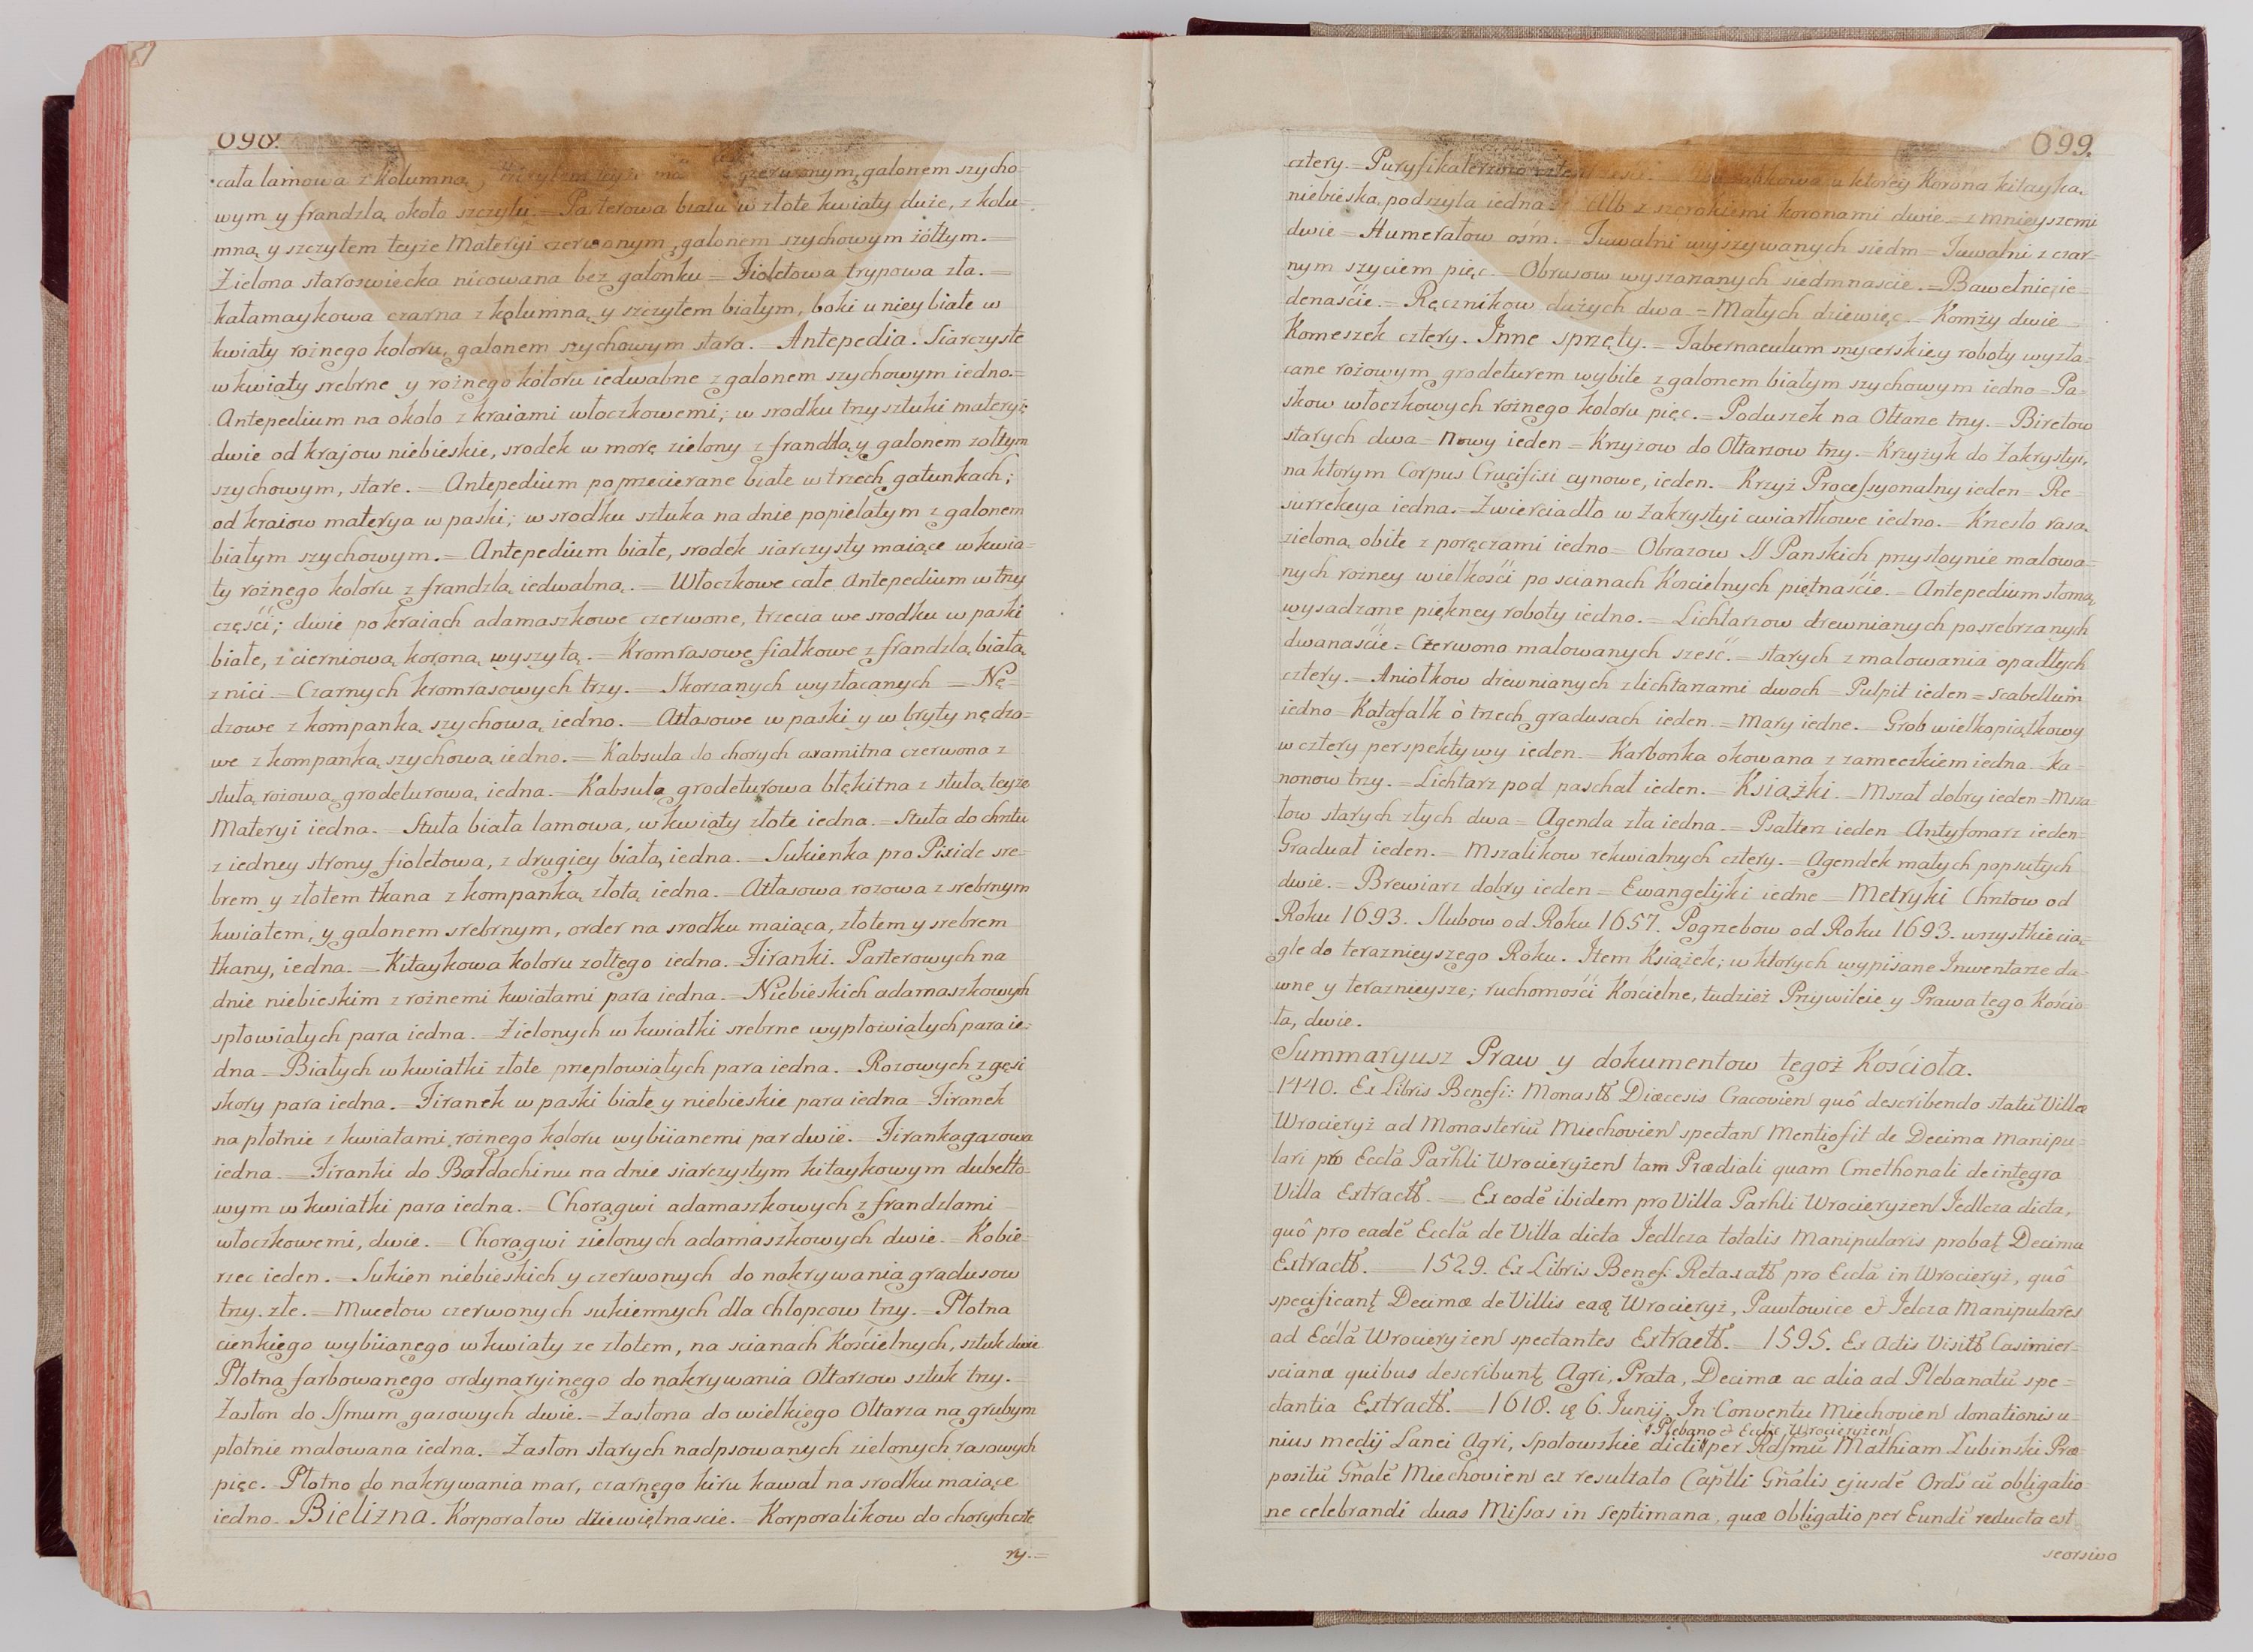 698.
cała lamowa z kolumną, galonem szycho-
wym y frandzlą około szczytu. = Parterowa biała w złote kwiaty duże, z kolu-
mną y szczytem teyże Materyi czerwonym, galonem szychowym żółtym. =
Zielona staroswiecka nicowana bez galonku = Fioletowa trypowa zła. =
kałamaykowa czarna z kolumną y szczytem białym, boki u niey białe w
kwiaty rożnego koloru, galonem szychowym stara. = Antepedia. Siarczyste
w kwiaty srebrne y rożnego koloru iedwabne z galonem szychowym iedno. =
Antepedium na około z kraiami włoczkowemi; w srodku trzy sztuki materyi;
dwie od krajow niebieskie, srodek w morę zielony z frandzlą y galonem zołtym
szychowym, stare. = Antepedium poprzecierane białe w trzech gatunkach;
od kraiow materya w paski; w srodku sztuka na dnie popielatym z galonem
białym szychowym. = Antepedium białe, srodek siarczysty maiące w kwia=
ty rożnego koloru z frandzlą iedwabną. = Włoczkowe całe Antepedium w trzy
części; dwie po kraiach adamaszkowe czerwone, trzecia we srodku w paski
białe, z cierniową koroną wyszytą. = Kromrasowe fiałkowe z frandzlą białą
z nici = Czarnych kromrasowych trzy. = Skorzanych wyzłacanych = Nę=
dzowe z kompanką szychową iedno. = Atłasowe w paski y w bryty nędzo=
we z kompanką szychową iedno. = Kabsula do chorych axamitna czerwona z
stułą rożową grodeturową iedna. = Kabsuła grodeturowa błękitna z stułą teyże
Materyi iedna. = Stuła biała lamowa, w kwiaty złote iedna. = Stuła do chrztu
z iedney strony fioletowa, z drugiey biała, iedna. = Sukienka pro Pixide sre=
brem y złotem tkana z kompanką złotą iedna. = Atłasowa rozowa z srebrnym
kwiatem, y galonem srebrnym, order na srodku maiąca, złotem y srebrem
tkany, iedna. = Kitaykowa koloru zołtego iedna. = Firanki. Parterowych na
dnie niebieskim z rożnemi kwiatami para iedna. = Niebieskich adamaszkowych
spłowiałych para iedna. = Zielonych w kwiatki srebrne wypłowiałych para ie=
dna = Białych w kwiatki złote przepłowiałych para iedna. = Rozowych z gęsi
skory para iedna. = Firanek w paski białe y niebieskie para iedna = Firanek
na płotnie z kwiatami rożnego koloru wybiianemi par dwie. = Firanka gazowa
iedna. = Firanki do Bałdachinu na dnie siarczystym kitaykowym dubelto=
wym w kwiatki para iedna. = Chorągwi adamaszkowych z frandzlami
włoczkowemi, dwie. = Chorągwi zielonych adamaszkowych dwie. = Kobie=
rzec ieden. = Sukien niebieskich y czerwonych do nakrywania gradusow
trzy. złe. = Mucetow czerwonych sukiennych dla chłopcow trzy. = Płotna
cienkiego wybiianego w kwiaty ze złotem, na scianach Kościelnych, sztuk dwie
Płotna farbowanego ordynaryinego do nakrywania Ołtarzow sztuk trzy. =
Zasłon do SSmum gazowych dwie. = Zasłona do wielkiego Ołtarza na grubym
płotnie malowana iedna. = Zasłon starych nadpsowanych zielonych rasowych
pięc. Płotno do nakrywania mar, czarnego kiru kawał na srodku maiące
iedno. Bielizna. Korporałow dziewiętnascie. = Korporalikow do chorych czte
ry. =
699.
cztery. = Puryfikaterzow u ktorey Korona kitayką
niebieską podszyta iedna = Alb z szerokiemi koronami dwie = z mnieyszemi
dwie = Humerałow ośm. = Tuwalni wyszywanych siedm = Tuwalni z czar=
nym szyciem pięc. = Obrusow wyszarzanych siedmnascie. = Bawełnic ie=
denaście. = Ręcznikow dużych dwa. = Małych dziewięc. = Komży dwie =
Komeszek cztery. Inne sprzęty. = Tabernaculum snycerskiey roboty wyzła=
cane rożowym grodeturem wybite z galonem białym szychowym iedno = Pa=
skow włoczkowych rożnego koloru pięc. = Poduszek na Ołtarze trzy. = Biretow
starych dwa = Nowy ieden = Krzyżow do Ołtarzow trzy. = Krzyżyk do Zakrystyi,
na ktorym Corpus Crucifixi cynowe, ieden. = Krzyż Processyonalny ieden = Re=
surrekcya iedna. = Zwierciadło w Zakrystyi cwiartkowe iedno. = Krzesło rasą
zieloną obite z poręczami iedno = Obrazow SS Panskich przystoynie malowa=
nych rozney wielkości po scianach Koscielnych piętnaście. = Antepedium słomą
wysadzane piękney roboty iedno. = Lichtarzow drewnianych posrebrzanych
dwanaście = Czerwono malowanych sześć. = starych z malowania opadłych
cztery. = Aniołkow drewnianych z lichtarzami dwoch = Pulpit ieden = Scabellum
iedno = Katafalk ò trzech gradusach ieden. = Mary iedne. = Grob wielkopiątkowy
w cztery perspektywy ieden. = Karbonka okowana z zameczkiem iedna. Ka=
nonow trzy. = Lichtarz pod paschał ieden. = Książki. = Mszał dobry ieden = Msza
łow starych złych dwa = Agenda zła iedna. = Psałterz ieden = Antyfonarz ieden =
Graduał ieden. = Mszalikow rekwialnych cztery. = Agendek małych popsutych
dwie. = Brewiarz dobry ieden = Ewangeliyki iedne = Metryki Chrztow od
Roku 1693. Slubow od Roku 1657. Pogrzebow od Roku 1693. wszystkie cią=
gle do teraznieyszego Roku. Item Książek; w ktorych wypisane Inwentarze da=
wne y teraznieysze; ruchomości Kościelne, tudzież Przywileie y Prawa tego Kościo=
ła, dwie.
Summaryusz Praw y dokumentow tegoż Kościoła.
1440. Ex Libris Benefi: Monastt Diœcesis Cracovien quô describendo statū Villæ
Wrocieryż ad Monasteriū Miechovien spectan mentio fit de Decima Manipu=
lari pro Ecclã Parhli Wrocieryżen tam Prædiali quam Cmethonali de integra
Villa Extractt. = Ex eodē ibidem pro Villa Parhli Wrocieryżen Jedlcza dicta,
quô pro eadē Ecclã de Villa dicta Jedlcza totalis Manipularis probat Decima
Extractt. = 1529. Ex Libris Benef: Retaxatt pro Ecclã in Wrocieryż, quô
specificant Decimæ de Villis eaq Wrocieryż, Pawłowice et Jelcza Manipulares
ad Ecclã Wrocieryżen spectantes Extractt. = 1595. Ex Actis Visitt Casimier=
scianæ quibus describunt Agri, Prata, Decimæ ac alia ad Plebanatū spe=
ctantia Extractt. = 1618. 6. Junij. In Conventu Miechovien donationis u=
Plebano et Ecclæ Wrocieryżen
nius medij Lanei Agri, Społowskie dicti per Rdsmū Mathiam Łubinski Præ
positū Gñalē Miechovien ex resultato Capttli Gñalis ejusdē Ords cū obligatio
ne celebrandi duas Missas in septimana, quæ obligatio per Eundē reducta est
seorsivo